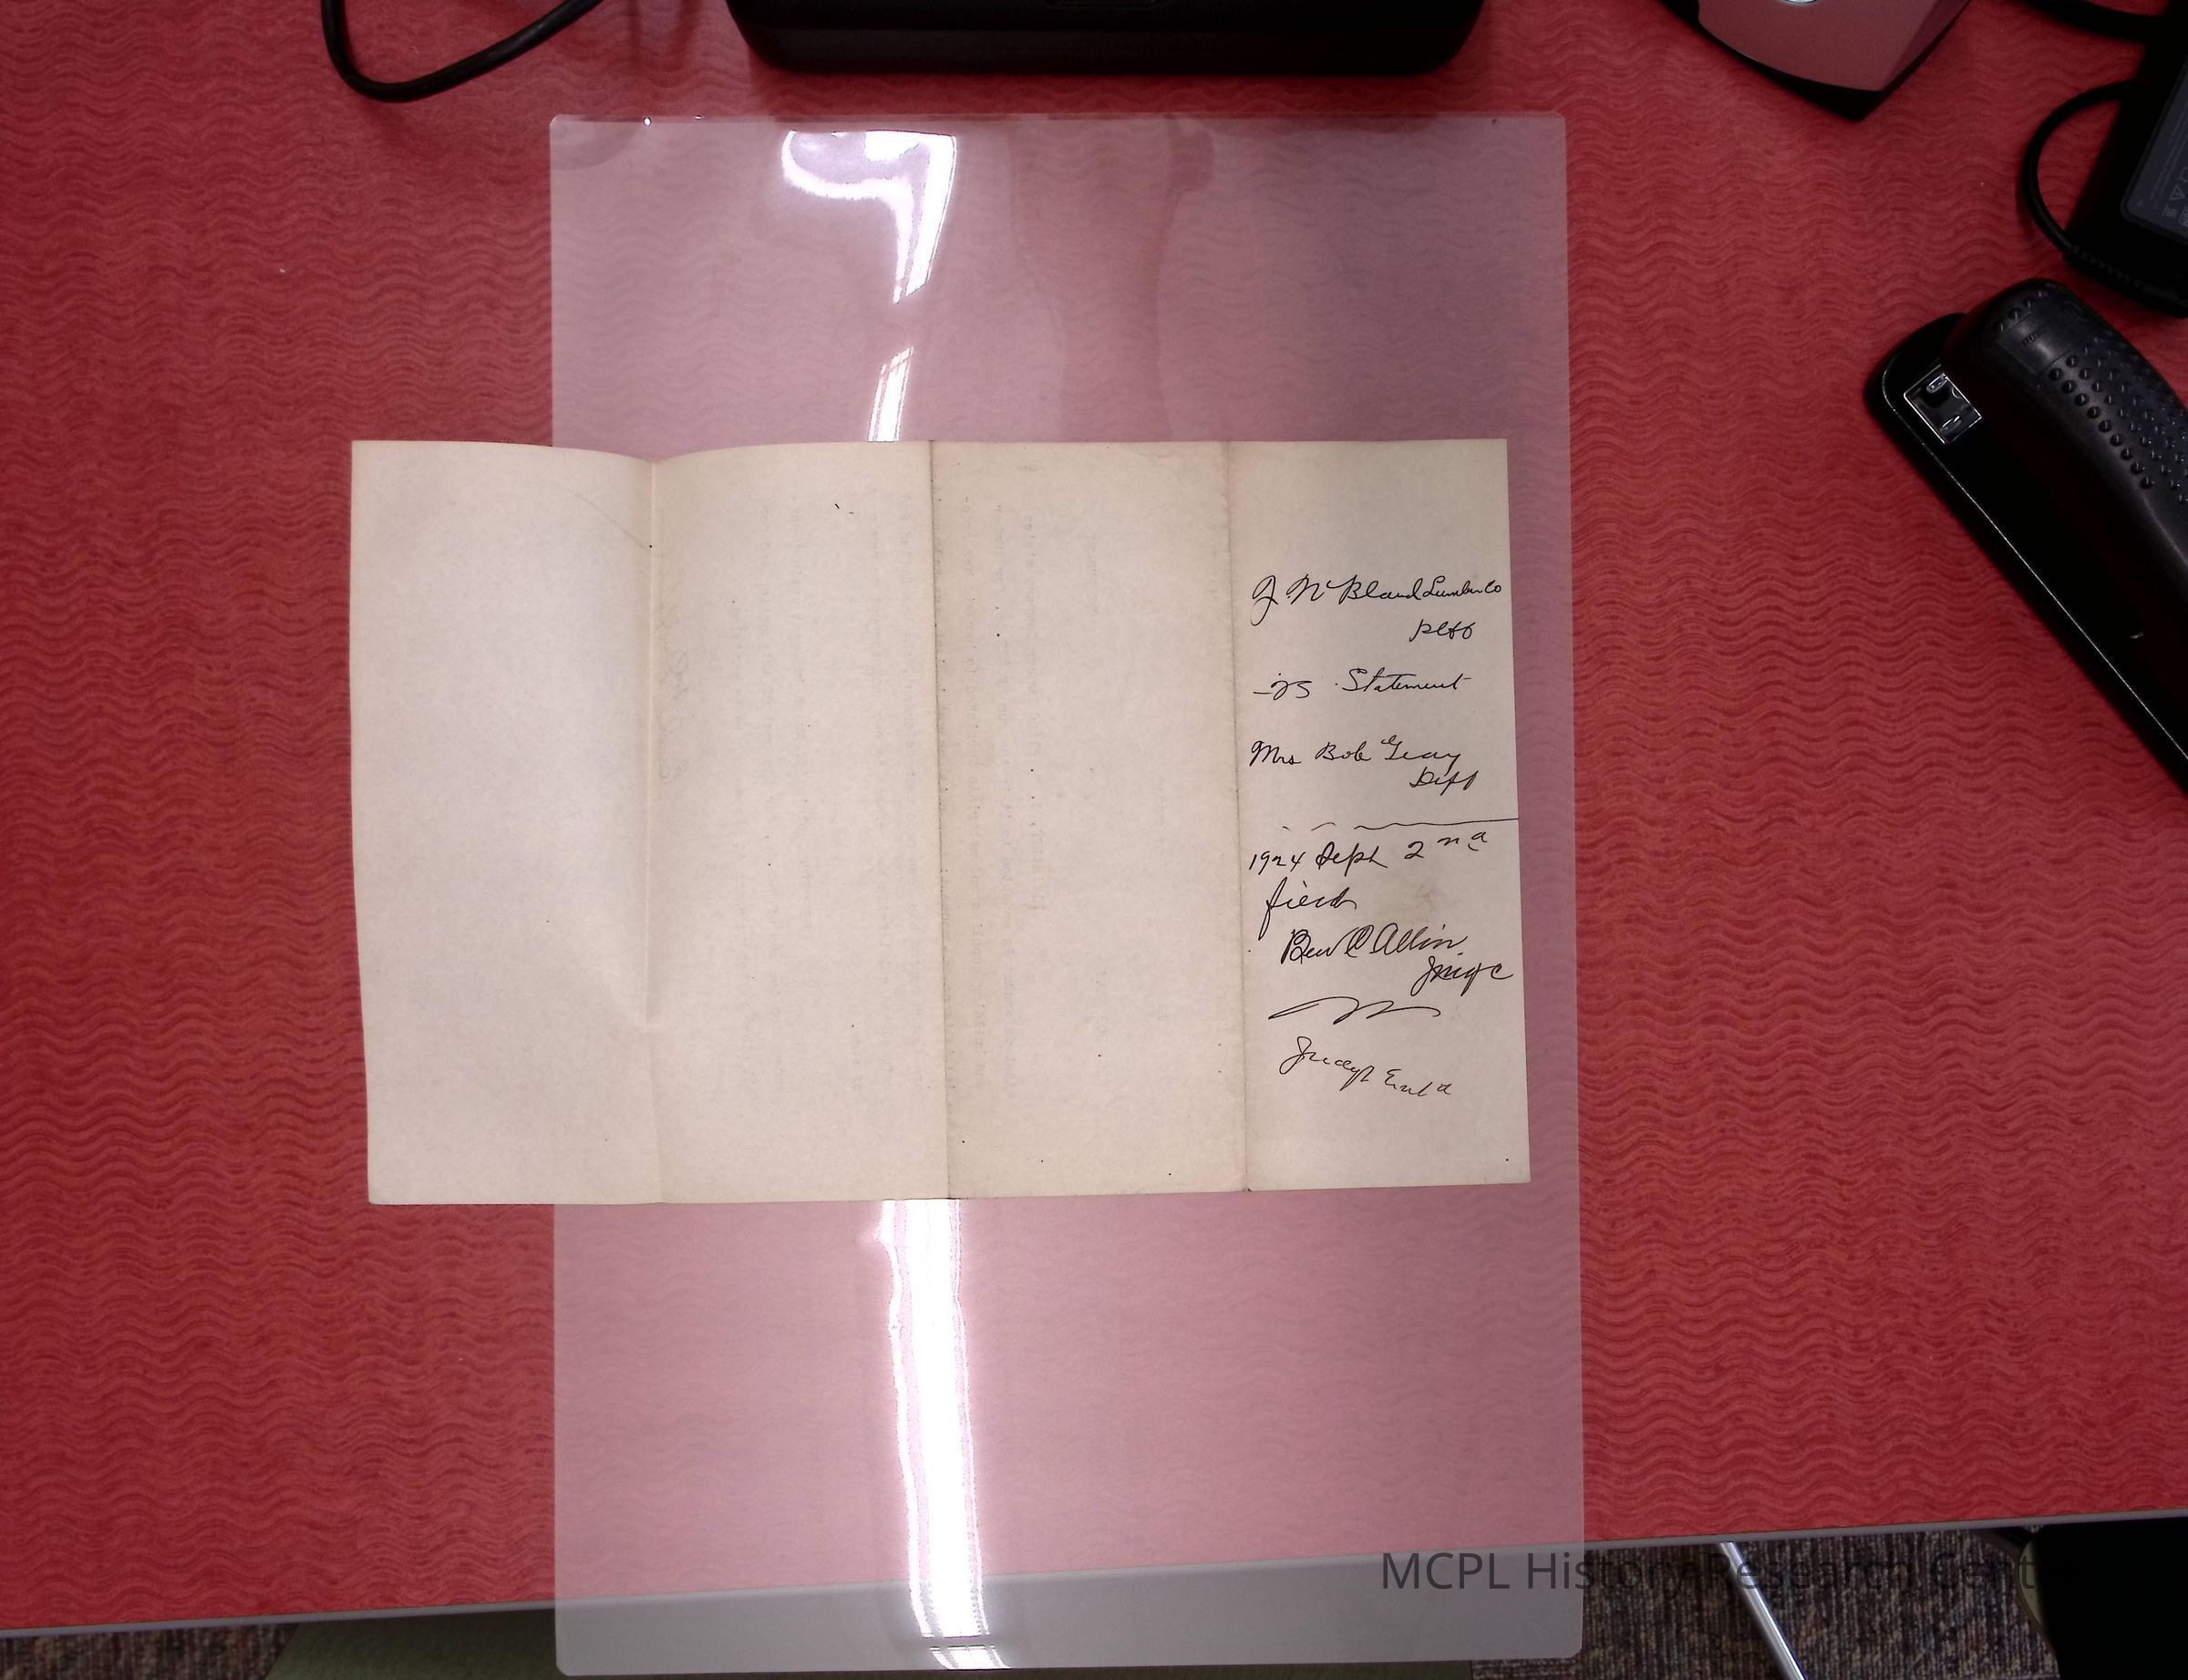 J. Mc Bland Lumber Co
Plff
-vs Statement
Mrs Bob Geay
Deff
1924 Sept 2nd
filed
Ben C Allin
Judge
MCPL History Research Cent